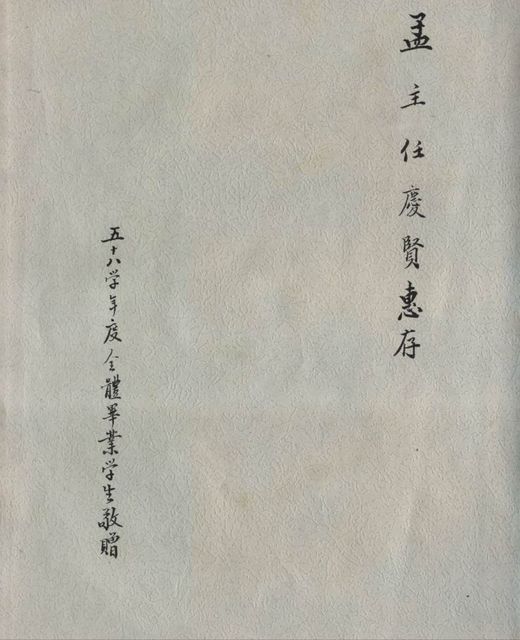 孟主任慶賢惠存
五十八学年度全體畢業学生敬贈